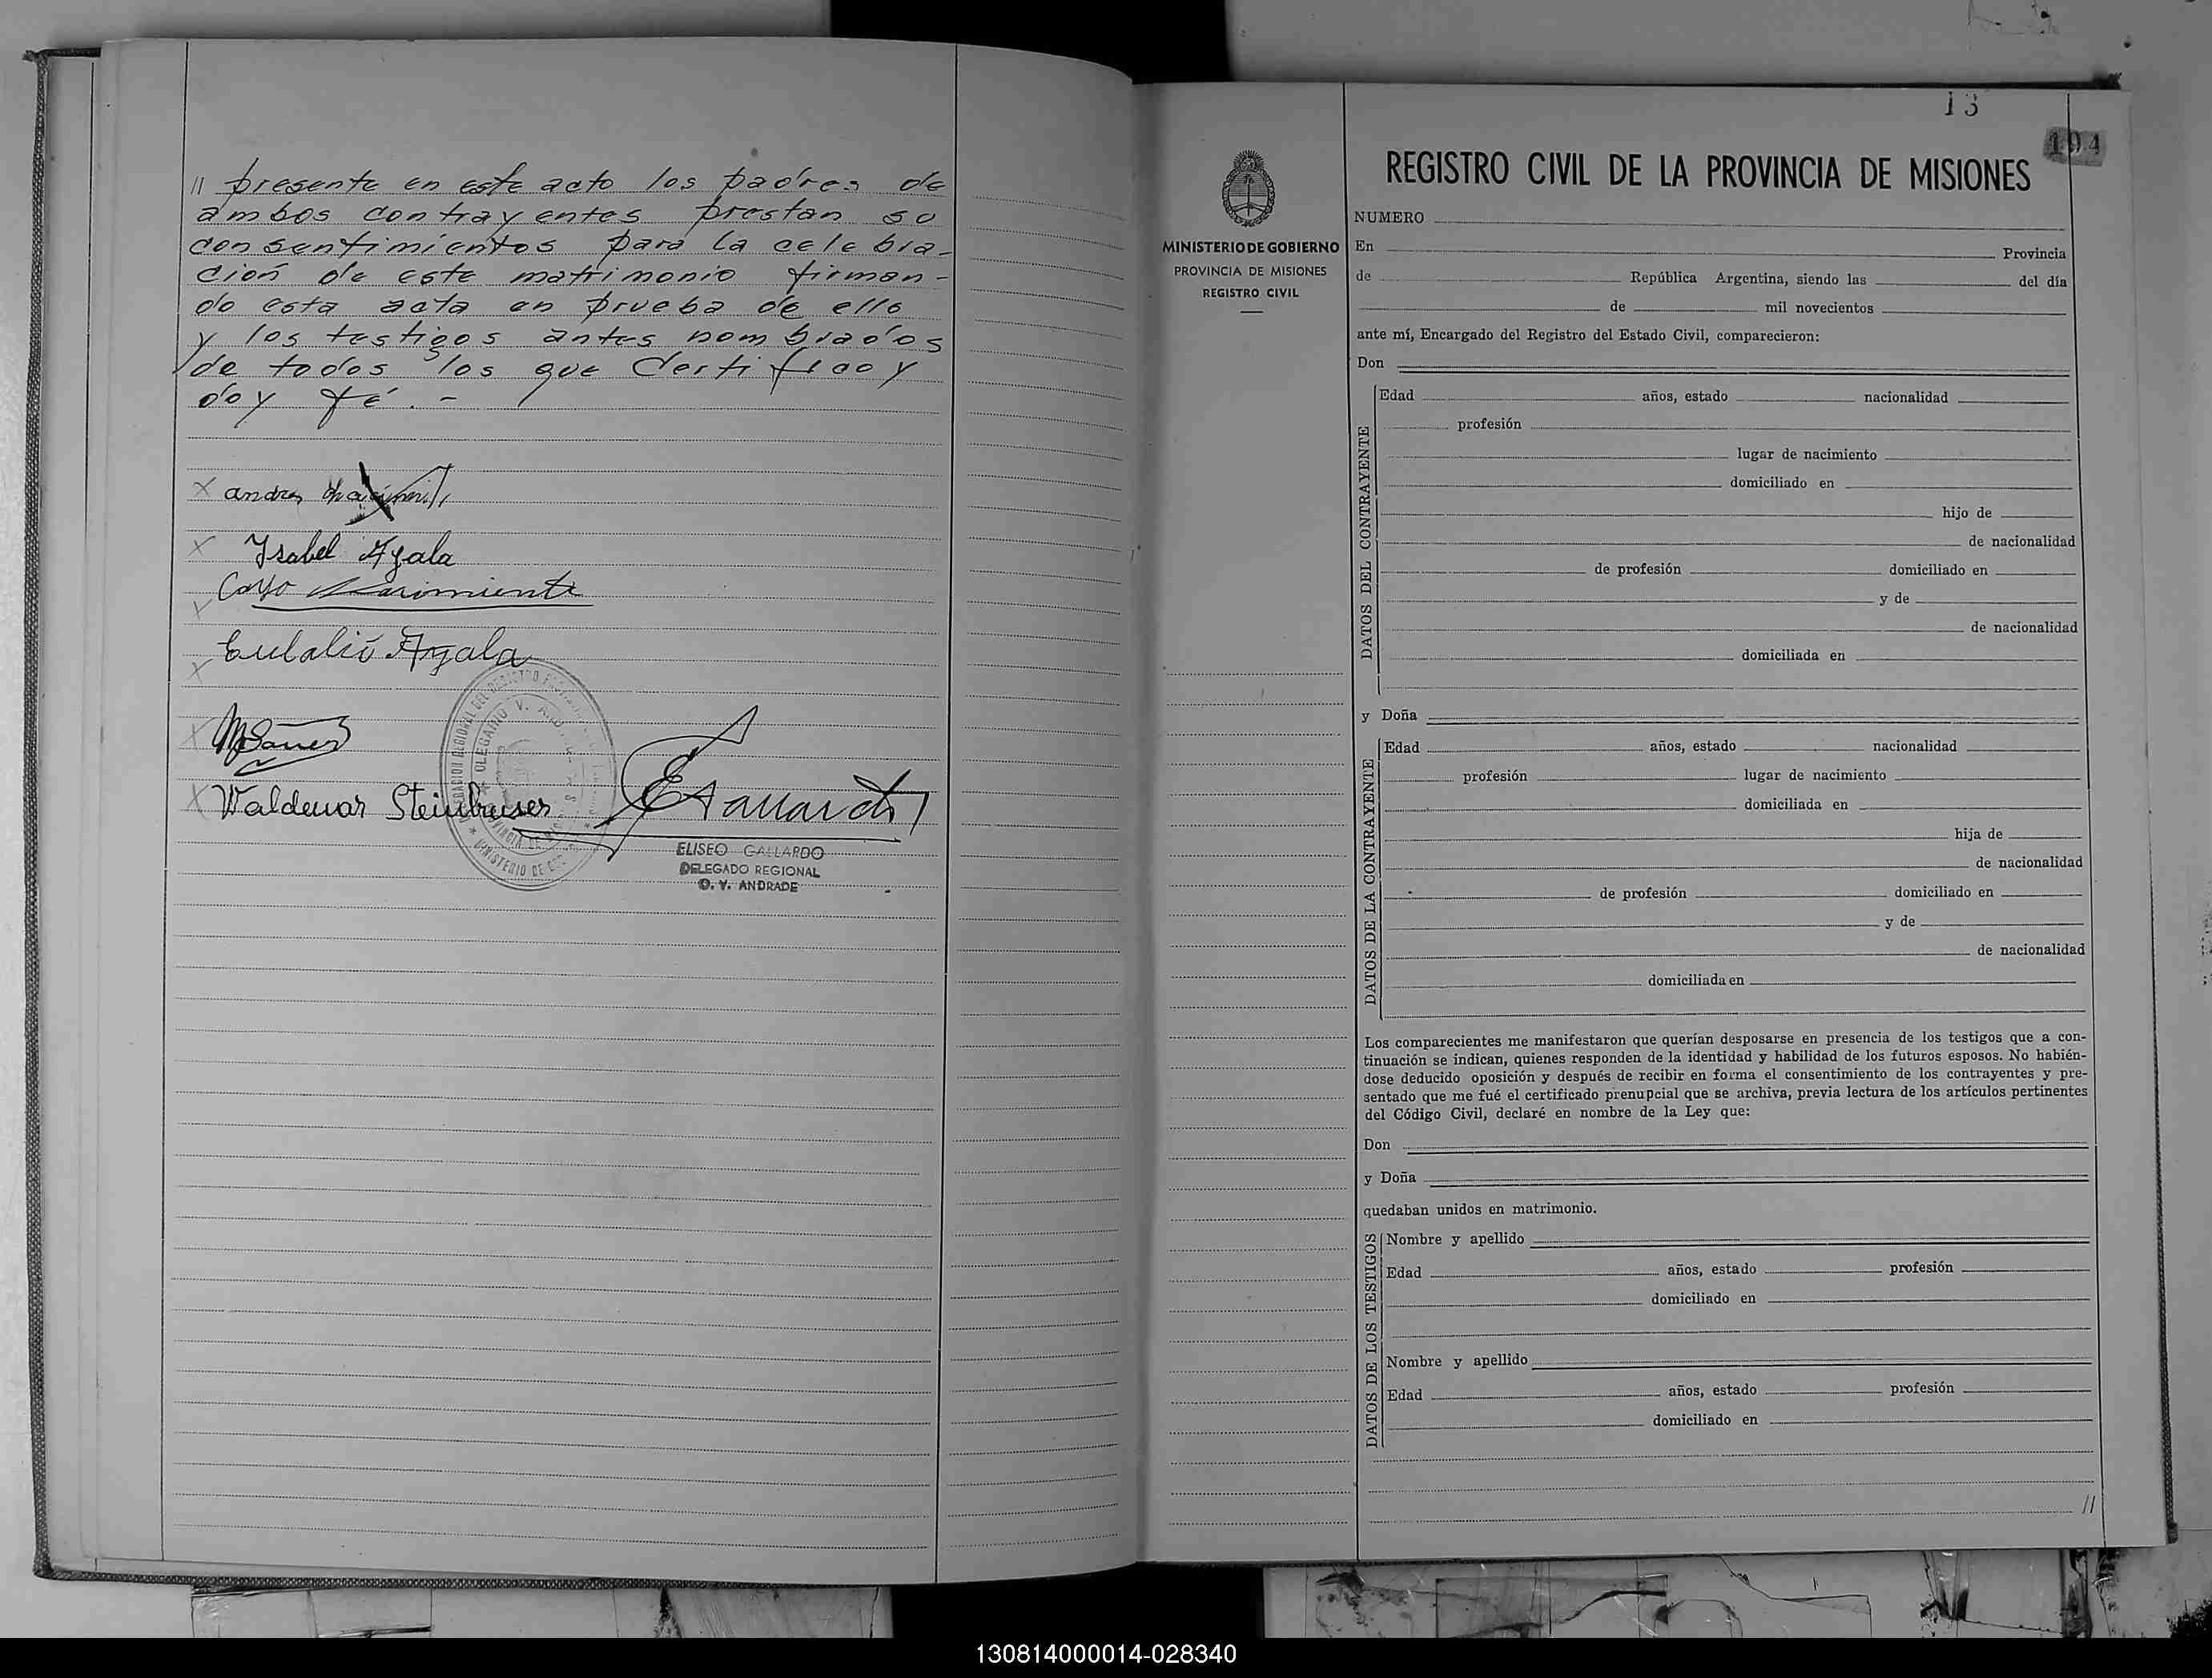 // presente en este acto los padres de
ambos contrayentes prestan su
consentimientos para la celebra-
ción de este matrimonio firman-
do esta acta en prueba de ello
y los testigos antes nombrados
de todos los que Certifico y
doy fé. -
X andres
X Ysabel Ayala
X
X Eulalio Ayala
X
X Waldemar
ELISEO GALLARDO
DELEGADO REGIONAL
O. V. ANDRADE
13
194
REGISTRO CIVIL DE LA PROVINCIA DE MISIONES
MINISTERIO DE GOBIERNO
PROVINCIA DE MISIONES
REGISTRO CIVIL
NUMERO
En Provincia
de República Argentina, siendo las del día
de mil novecientos
ante mí, Encargado del Registro del Estado Civil, comparecieron:
Don
DATOS DEL CONTRAYENTE
Edad años, estado nacionalidad
profesión
lugar de nacimiento
domiciliado en
hijo de
de nacionalidad
de profesión domiciliado en
y de
de nacionalidad
domiciliada en
y Doña
DATOS DE LA CONTRAYENTE
Edad años, estado nacionalidad
profesión lugar de nacimiento
domiciliada en
hija de
de nacionalidad
de profesión domiciliado en
y de
de nacionalidad
domiciliada en
Los comparecientes me manifestaron que querían desposarse en presencia de los testigos que a con-
tinuación se indican, quienes responden de la identidad y habilidad de los futuros esposos. No habién-
dose deducido oposición y después de recibir en forma el consentimiento de los contrayentes y pre-
sentado que me fué el certificado prenupcial que se archiva, previa lectura de los artículos pertinentes
del Código Civil, declaré en nombre de la Ley que:
Don
y Doña
quedaban unidos en matrimonio.
DATOS DE LOS TESTIGOS
Nombre y apellido
Edad años, estado profesión
domiciliado en
Nombre y apellido
Edad años, estado profesión
domiciliado en
//
130814000014-028340